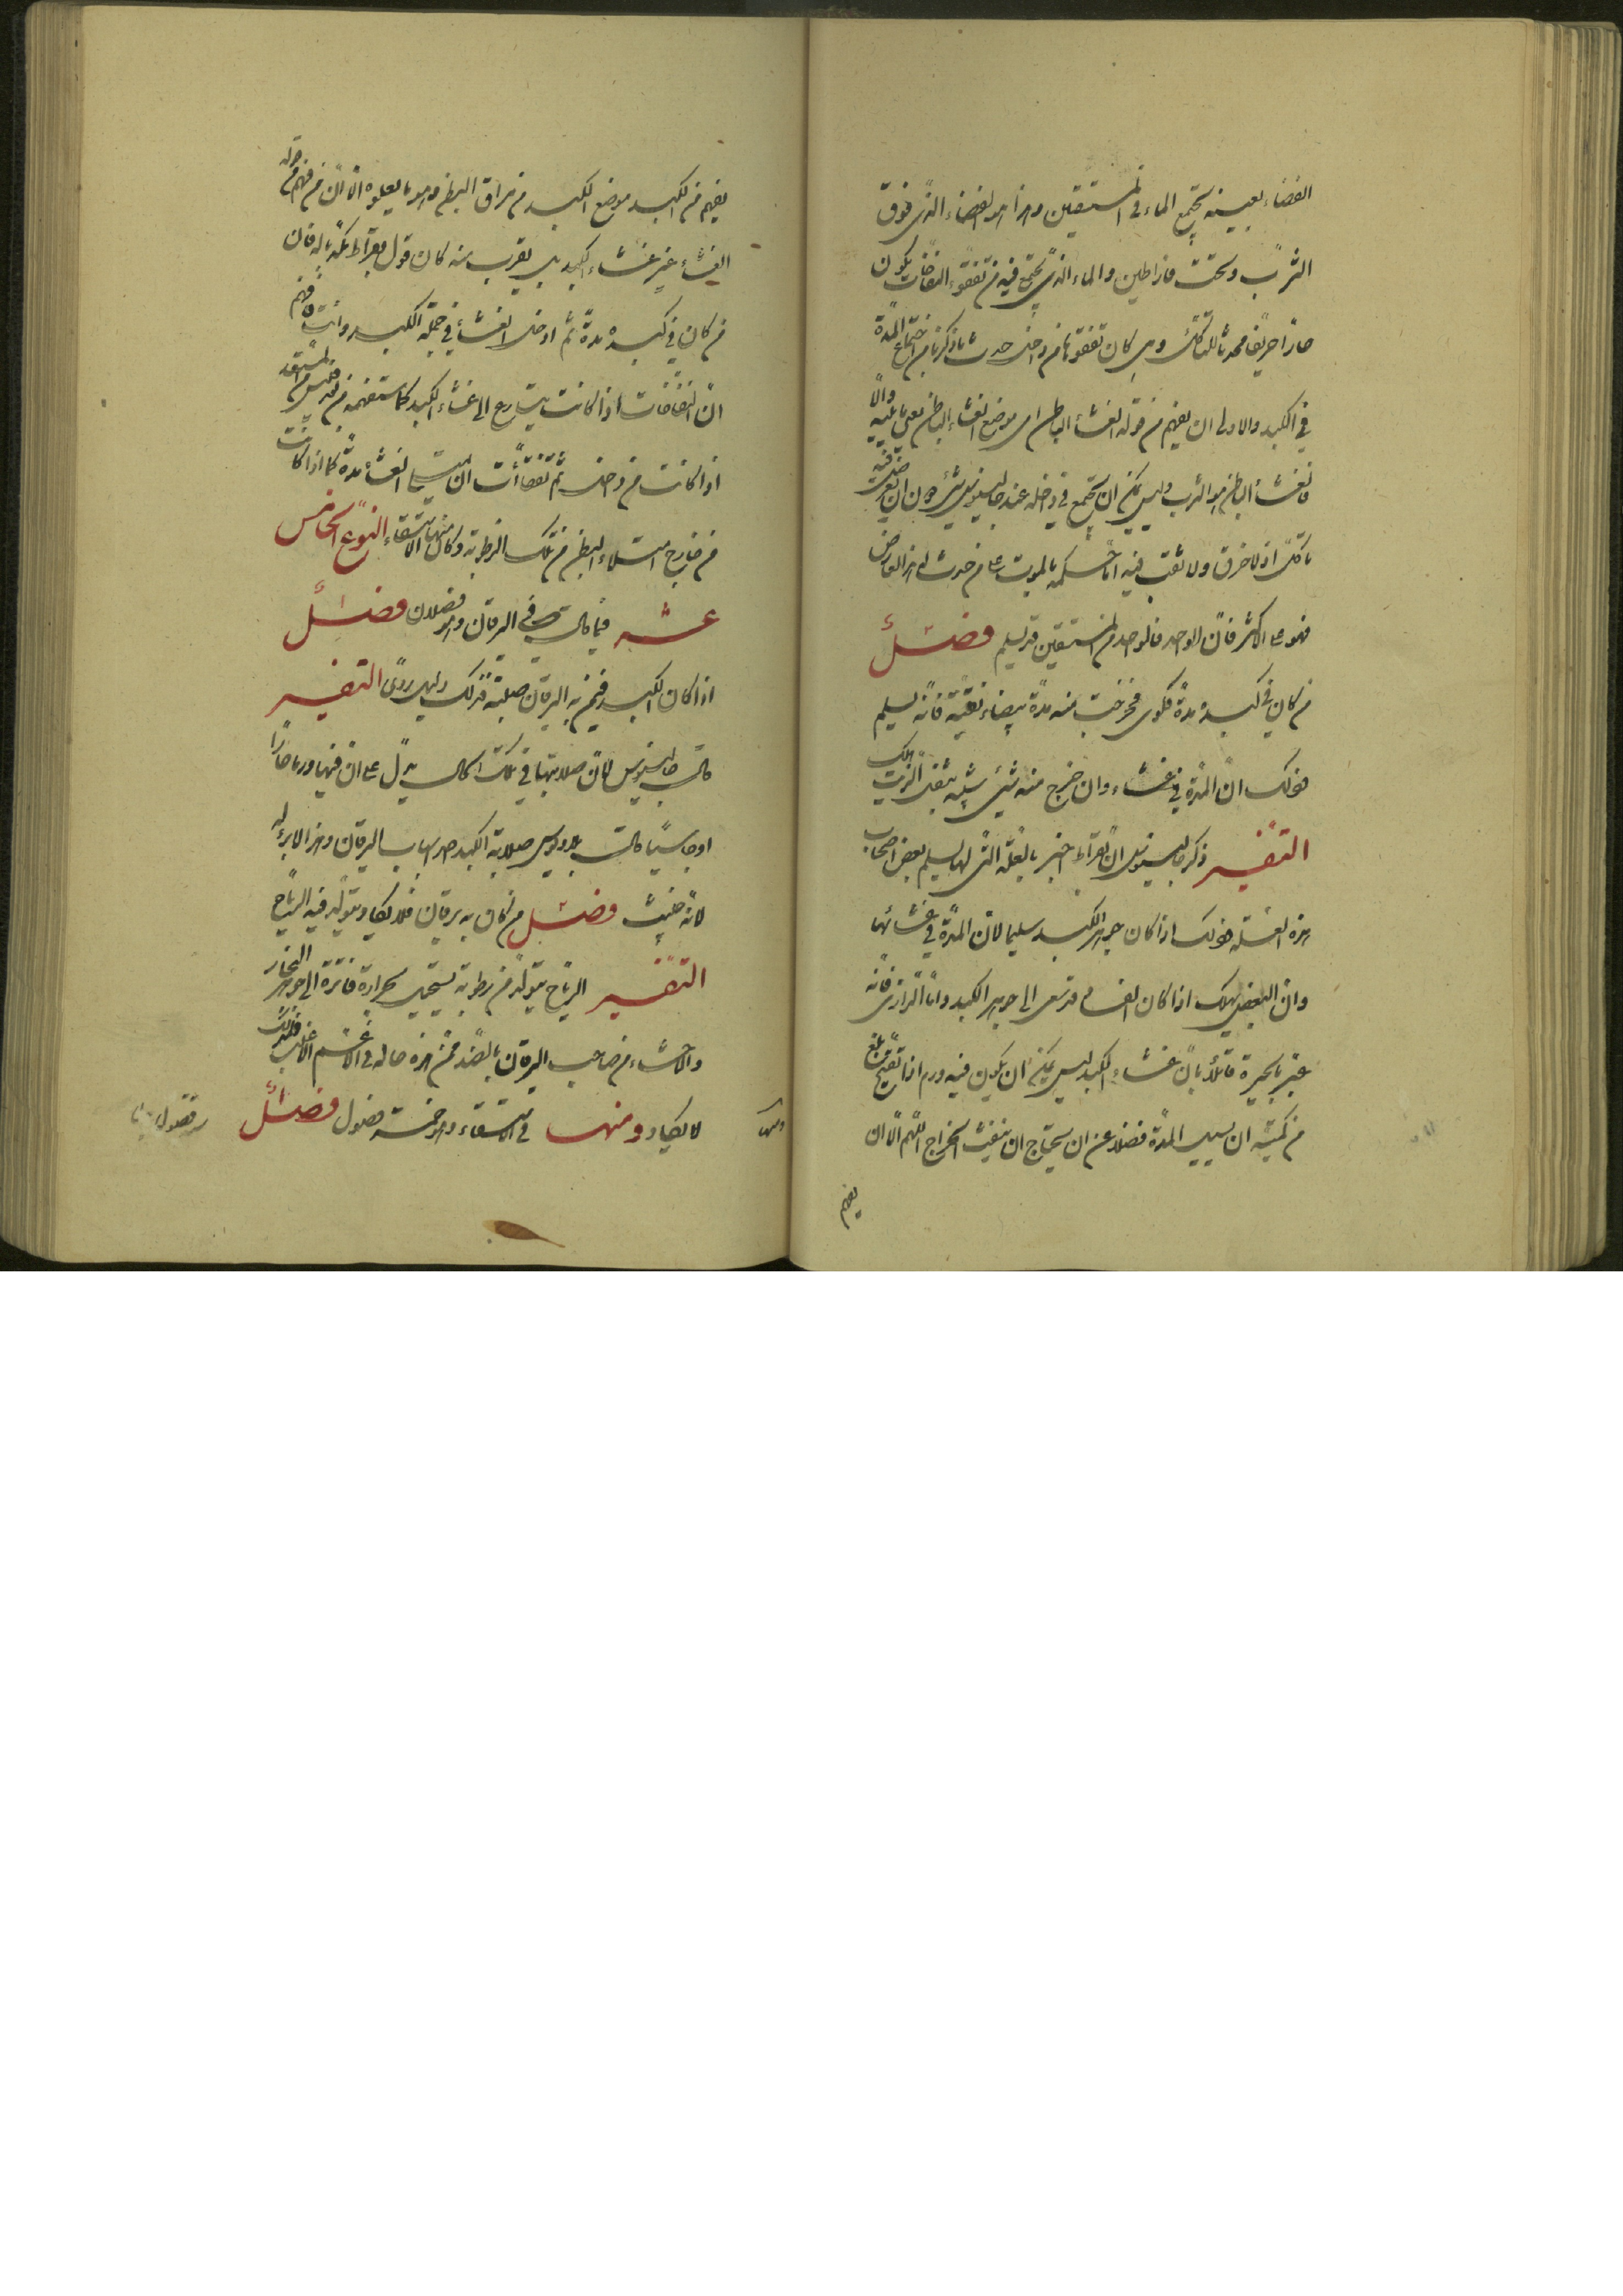 الفضاء بعينه يجتمع الماء في المستسقين وهذا هو الفضاء الذي فوق
الثرب وتحت فاراطين والماء الذي يجتمع فيه من تفقؤ النفاخات يكون
حارا حريفا محدثا للتاكل ومتى كان تفقوها من داخل حدث ما ذكرنا من اجتماع المدة
في الكبد والاولى ان يفهم من قوله الغشاء الباطن اى موضع الغشاء الباطن يعنى ما يليه والا
فالغشاء الباطن هو الثرب وليس يمكن ان يجتمع في داخله عند جالينوس شئ دون ان
ياكل اذ لا خرق ولا ثقب فيه اما حكمه بالموت على من حدث له هذا العارض
فهو على الاكثر فان الواحد فالواحد من المستسقين قد يسلم فصل
من كان في كبده مدة فكوى فخرجت منه مدة بيضاء نقية فانه يسلم
فذلك ان المدة في غشاء وان خرج منه شئ شبيه بثفل الزيت هلك
التفسير ذكر جالينوس ان بقراط اخبر بالعلة التى لها يسلم بعض اصحاب
هذه العلة فذلك اذا كان جوهر الكبد سليما لان المدة في غشائها
وان البعض يهلك اذا كان الفساد قد سعى الى جوهر الكبد واما الرازى فانه
عبر بالحيرة قائلا بان غشاء الكبد ليس يمكن ان يكون فيه ورم اذا تقيح بلغ
من كميته ان يسيل المدة فضلا عن ان يحتاج ان ينفث الخراج اللهم الا ان
يفهم
يفهم من الكبد موضع الكبد من مراق البطن وهو ما يعلوه الا ان من فهم من قوله
الغشاء غير غشاء الكبد بل يقرب منه كان قول بقراط بحاله فان
من كان في كبده مدة ثم ادخل الغشاء في جملة الكبد وانت فافهم
ان النفاخات اذا كانت يتسارع الى غشاء الكبد كما ستفهمه من
اذا كانت من داخل ثم تفقأت ان الغشاء مدة كما اذا كانت
من خارج امتلاء البطن من تلك الرطوبة وكان منها الاستسقاء النوع الخامس
عشر فيما قال في اليرقان وهو فصلان فصل
اذا كان الكبد فيمن به اليرقان صلبة فذلك دليل ردى التفسير
قال جالينوس لان صلابتها في تلك الحال يدل على ان فيها ورما حارا
او جاسيا قالت صلابة الكبد اسباب اليرقان وهذا لا برء له
لانه خبيث فصل من كان به يرقان فلا يكاد يتولد فيه الرياح
التفسير الرياح يتولد من رطوبة يستحيل بحرارة فاترة الى جوهر البخار
والاحشاء من صاحب اليرقان بالضد فمن هذه حاله في الاعم الاغلب فلذلك
لا يكاد ومنها في الاستسقاء وهو خمسة فصول فصل